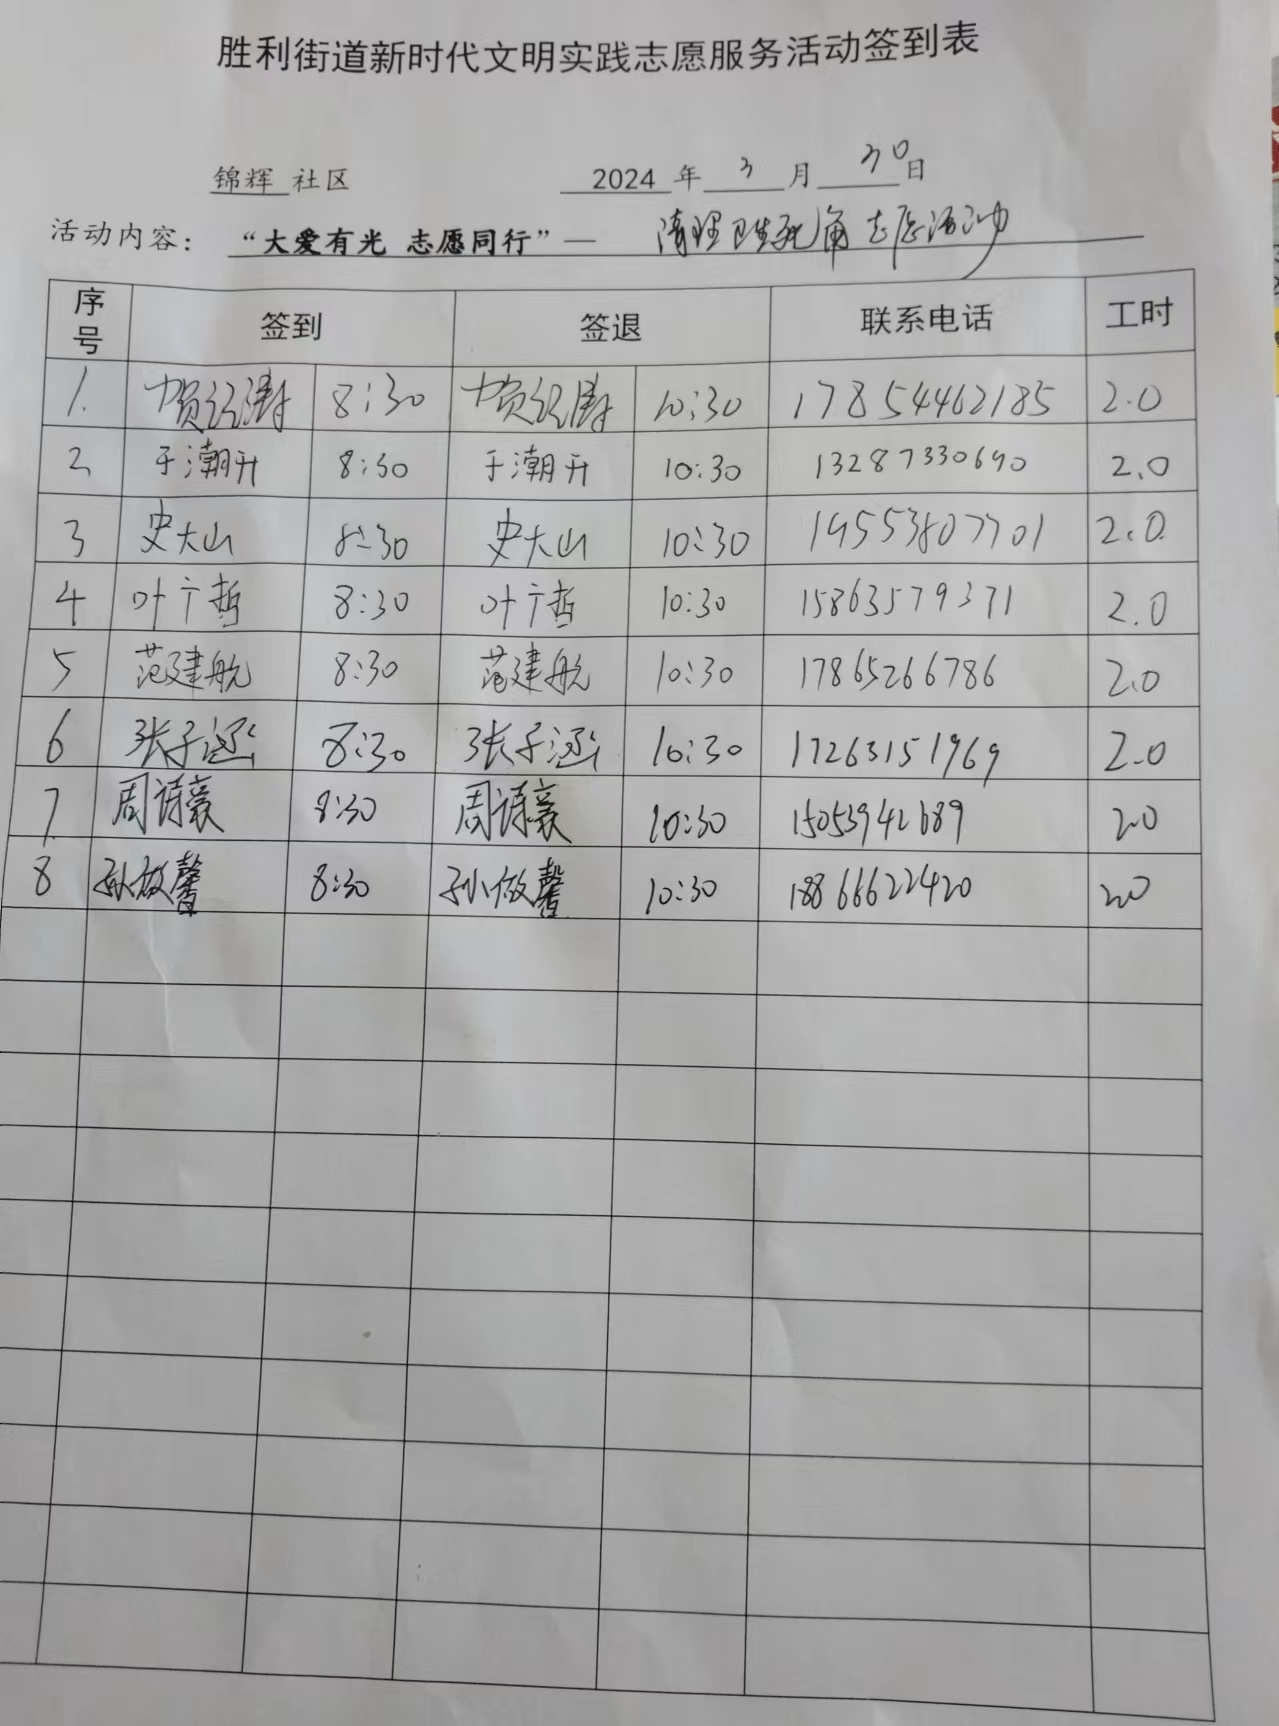 胜利街道新时代文明实践志愿服务活动签到表
锦辉 社区 2024 年 3 月 30 日
活动内容： “大爱有光 志愿同行”— 清理卫生死角志愿活动
序号 签到 签退 联系电话 工时
1. 贺 8:30 贺 10:30 17854462185 2.0
2 于潮升 8:30 于潮升 10:30 13287330690 2.0
3 史大山 8:30 史大山 10:30 19553807701 2.0
4 叶广哲 8:30 叶广哲 10:30 15863579371 2.0
5 范建航 8:30 范建航 10:30 17865266786 2.0
6 张子涵 8:30 张子涵 10:30 17263151969 2.0
7 周诗豪 8:30 周诗豪 10:30 15053942689 2.0
8 孙馨 8:30 孙馨 10:30 18866622420 2.0